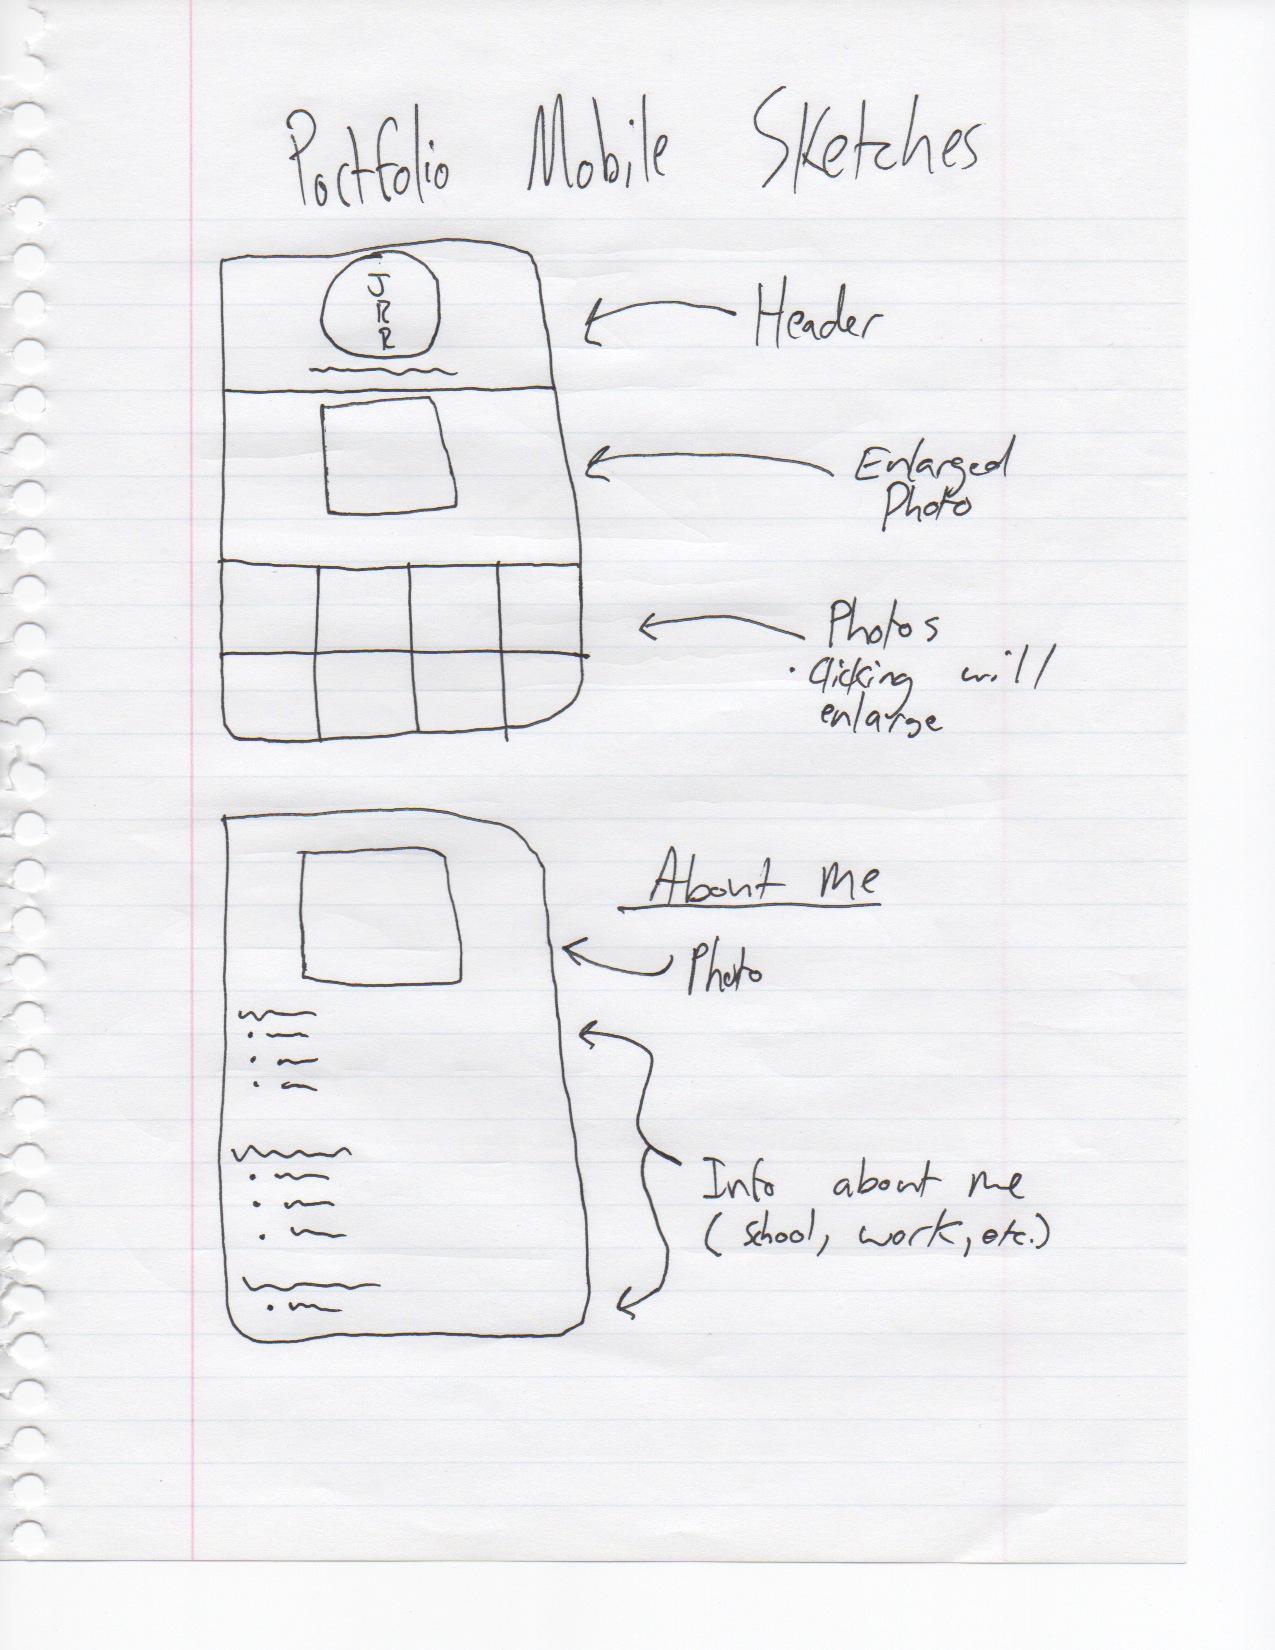 Portfolio Mobile Sketches
J
R
R
Header
Enlarged
Photo
Photos
• Clicking will
enlarge
About Me
Photo
Info about me
(school, work, etc.)